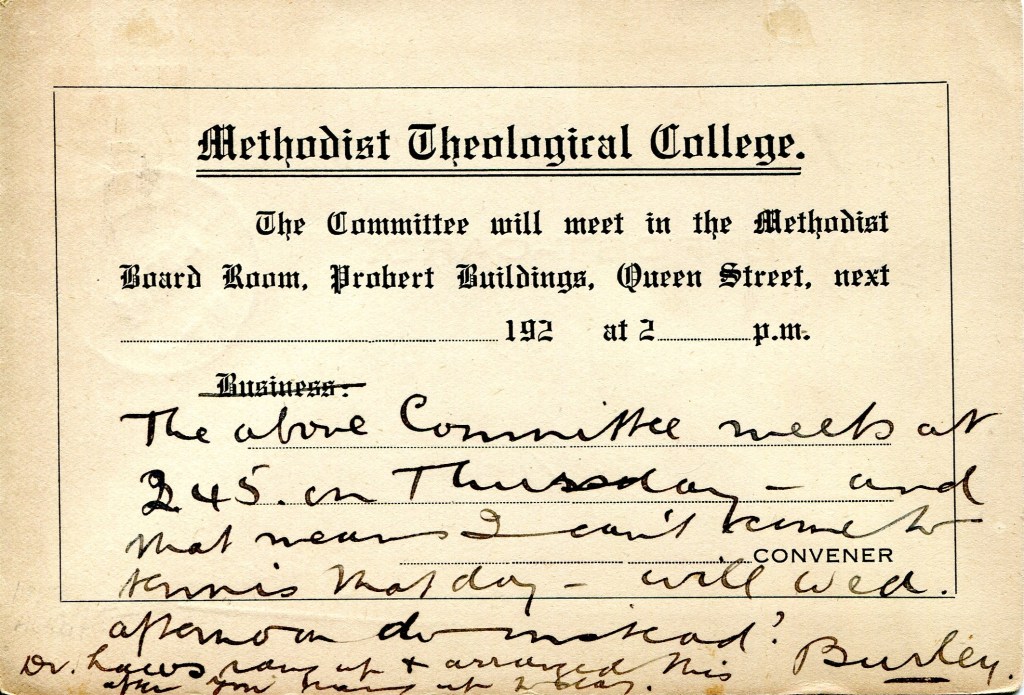 Methodist Theological College.
The Committee will meet in the Methodist
Board Room, Probert Buildings, Queen Street, next
192 at 2 p.m.
Business:
The above Committee meets at
2.45. on Thursday – and
that means I can't come to
CONVENER
tennis that day – will Wed.
afternoon do instead?
Burley.
Dr. Laws rang up & arranged this
after you rang up today.